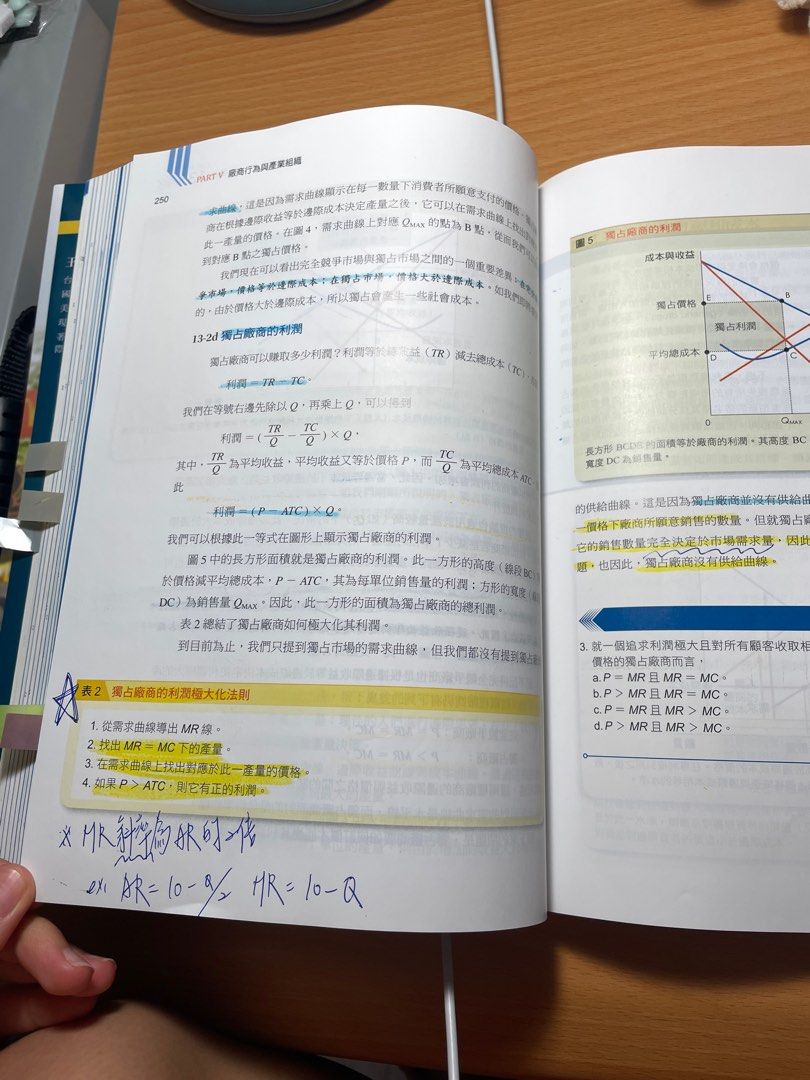 PART V 廠商行為與產業組織
250
求曲線，這是因為需求曲線顯示在每一數量下消費者所願意支付的價格。
商在根據邊際收益等於邊際成本決定產量之後，它可以在需求曲線上找出
此一產量的價格。在圖 4，需求曲線上對應 QMAX 的點為 B 點，從而我們可
到對應 B 點之獨占價格。
我們現在可以看出完全競爭市場與獨占市場之間的一個重要差異：
爭市場，價格等於邊際成本；在獨占市場，價格大於邊際成本。如我們
的，由於價格大於邊際成本，所以獨占會產生一些社會成本。
13-2d 獨占廠商的利潤
獨占廠商可以賺取多少利潤？利潤等於總收益（TR）減去總成本（TC），
利潤 = TR − TC。
我們在等號右邊先除以 Q，再乘上 Q，可以得到
利潤 = ( TR/Q − TC/Q ) × Q，
其中，TR/Q 為平均收益，平均收益又等於價格 P，而 TC/Q 為平均總成本 ATC，
此
利潤 = (P − ATC) × Q。
我們可以根據此一等式在圖形上顯示獨占廠商的利潤。
圖 5 中的長方形面積就是獨占廠商的利潤。此一方形的高度（線段 BC）
於價格減平均總成本，P − ATC，其為每單位銷售量的利潤；方形的寬度（
DC）為銷售量 QMAX。因此，此一方形的面積為獨占廠商的總利潤。
表 2 總結了獨占廠商如何極大化其利潤。
到目前為止，我們只提到獨占市場的需求曲線，但我們都沒有提到獨占
表 2 獨占廠商的利潤極大化法則
1. 從需求曲線導出 MR 線。
2. 找出 MR = MC 下的產量。
3. 在需求曲線上找出對應於此一產量的價格。
4. 如果 P > ATC，則它有正的利潤。
※ MR 斜率為 AR 的 2 倍
ex. AR = 10 - Q/2 MR = 10 - Q
圖 5 獨占廠商的利潤
成本與收益
獨占價格
E
B
獨占利潤
平均總成本
D
C
0
QMAX
長方形 BCDE 的面積等於廠商的利潤。其高度 BC
寬度 DC 為銷售量。
的供給曲線。這是因為獨占廠商並沒有供給曲
一價格下廠商所願意銷售的數量。但就獨占
它的銷售數量完全決定於市場需求量，因此
題，也因此，獨占廠商沒有供給曲線。
3. 就一個追求利潤極大且對所有顧客收取相
價格的獨占廠商而言，
a. P = MR 且 MR = MC。
b. P > MR 且 MR = MC。
c. P = MR 且 MR > MC。
d. P > MR 且 MR > MC。